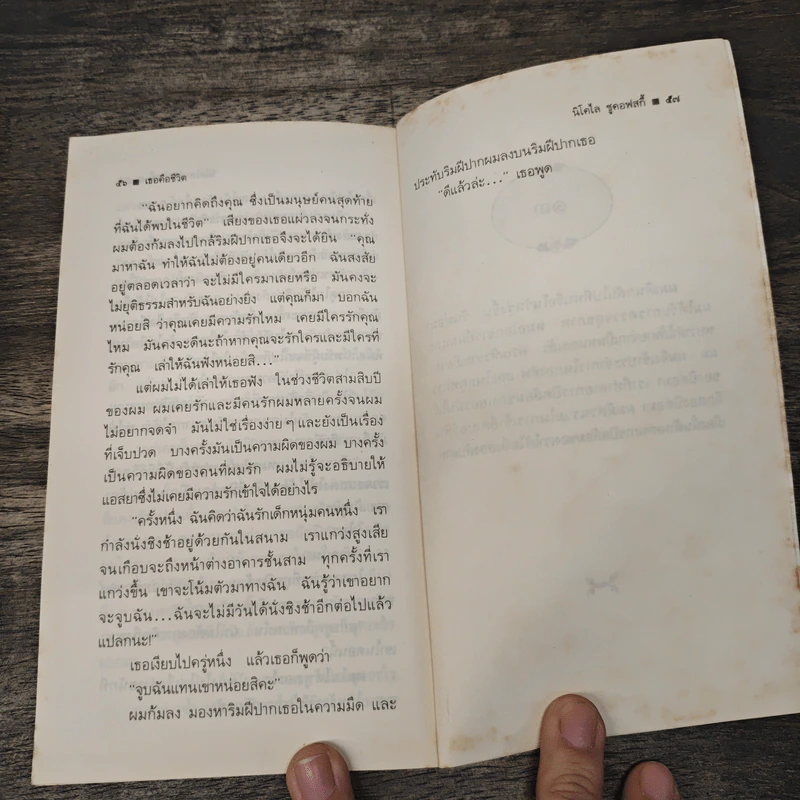 ๕๖ ■ เธอคือชีวิต
“ฉันอยากคิดถึงคุณ ซึ่งเป็นมนุษย์คนสุดท้าย
ที่ฉันได้พบในชีวิต” เสียงของเธอแผ่วลงจนกระทั่ง
ผมต้องก้มลงไปใกล้ริมฝีปากเธอจึงจะได้ยิน “คุณ
มาหาฉัน ทำให้ฉันไม่ต้องอยู่คนเดียวอีก ฉันสงสัย
อยู่ตลอดเวลาว่า จะไม่มีใครมาเลยหรือ มันคงจะ
ไม่ยุติธรรมสำหรับฉันอย่างยิ่ง แต่คุณก็มา บอกฉัน
หน่อยสิ ว่าคุณเคยมีความรักไหม เคยมีใครรักคุณ
ไหม มันคงจะดีนะถ้าหากคุณจะรักใครและมีใครที่
รักคุณ เล่าให้ฉันฟังหน่อยสิ...”
แต่ผมไม่ได้เล่าให้เธอฟัง ในช่วงชีวิตสามสิบปี
ของผม ผมเคยรักและมีคนรักผมหลายครั้งจนผม
ไม่อยากจดจำ มันไม่ใช่เรื่องง่าย ๆ และยังเป็นเรื่อง
ที่เจ็บปวด บางครั้งมันเป็นความผิดของผม บางครั้ง
เป็นความผิดของคนที่ผมรัก ผมไม่รู้จะอธิบายให้
แอสยาซึ่งไม่เคยมีความรักเข้าใจได้อย่างไร
“ครั้งหนึ่ง ฉันคิดว่าฉันรักเด็กหนุ่มคนหนึ่ง เรา
กำลังนั่งชิงช้าอยู่ด้วยกันในสนาม เราแกว่งสูงเสีย
จนเกือบจะถึงหน้าต่างอาคารชั้นสาม ทุกครั้งที่เรา
แกว่งขึ้น เขาจะโน้มตัวมาทางฉัน ฉันรู้ว่าเขาอยาก
จะจูบฉัน...ฉันจะไม่มีวันได้นั่งชิงช้าอีกต่อไปแล้ว
แปลกนะ!”
เธอเงียบไปครู่หนึ่ง แล้วเธอก็พูดว่า
“จูบฉันแทนเขาหน่อยสิคะ”
ผมก้มลง มองหาริมฝีปากเธอในความมืด และ
นิโคไล ชูคอฟสกี้ ■ ๕๗
ประทับริมฝีปากผมลงบนริมฝีปากเธอ
“ดีแล้วล่ะ...” เธอพูด